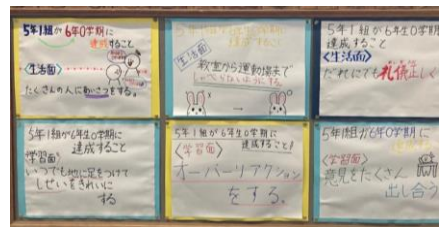 5年1組が6年0学期に
達成すること
〈生活面〉
たくさんの人にあいさつをする。
5年1組が6年生0学期に
達成すること
〈生活面〉
教室から運動場まで
しゃべらないようにする。
5年1組が6年生0学期に
達成すること
〈生活面〉
だれにでも礼儀正しく
5年1組が6年生0学期に
達成すること
〈学習面〉
いつでも地に足をつけて
しせいをきれいに
する
5年1組が6年生0学期に
達成すること!
〈学習面〉
オーバーリアクション
をする。
5年1組が6年生0学期に
〈学習面〉
意見をたくさん
出し合う